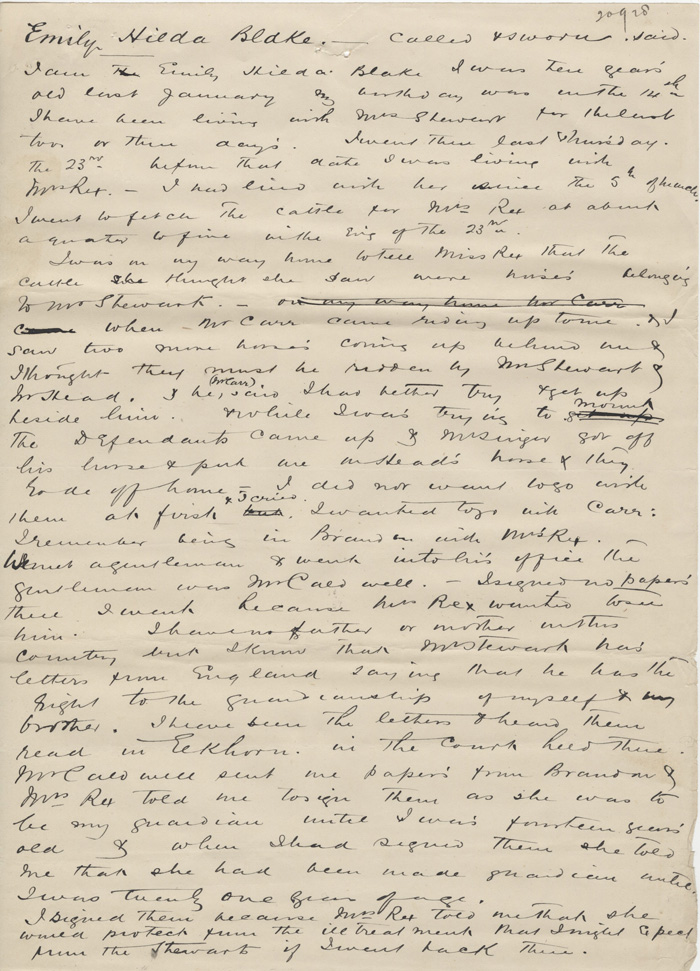 20928
Emily Hilda Blake. — Called & sworn. said.
I am Emily Hilda Blake I was ten years
old last January my birthday was on the 14th
I have been living with Mrs Shewart for the last
two or three days. I went there last Thursday.
the 23rd before that date I was living with
Mrs Rex. — I had lived with her since the 5th of
I went to fetch the cattle for Mrs Rex at about
a quater to five in the Eng of the 23rd.
I was on my way home to tell Miss Rex that the
cattle she thought she saw were horses belonging
to Mr Shewart. — on my way home Mr Carr
came when Mr Carr came riding up to me. & I
saw two more horses coming up behind me &
I thought they must be ridden by Mr Shewart &
Mr Head. & he, (Mr Carr) said I had better try & get up
beside him. & while I was trying to get up mount
the Defendants came up & Mr Singer got off
his horse & put me on Head's horse & they
rode off home — I did not want to go with
them at first but & I cried. I wanted to go with Carr:
I remember being in Brandon with Mrs Rex.
We met a gentleman & went into his office the
gentleman was Mr Caldwell. — I signed no papers
there I went because Mrs Rex wanted to see
him. I have no father or mother in this
country but I know that Mr Stewart has
letters from England saying that he has the
right to the guardianship of myself & my
brother. I have seen the letters & heard them
read in Elkhorn. in the Court held there.
Mr Caldwell sent me papers from Brandon &
Mrs Rex told me to sign them as she was to
be my guardian until I was fourteen years
old & when I had signed them she told
me that she had been made guardian until
I was twenty one years of age.
I signed them because Mrs Rex told me that she
would protect from the illtreatment that I might Expect
from the Stewarts if I went back there.